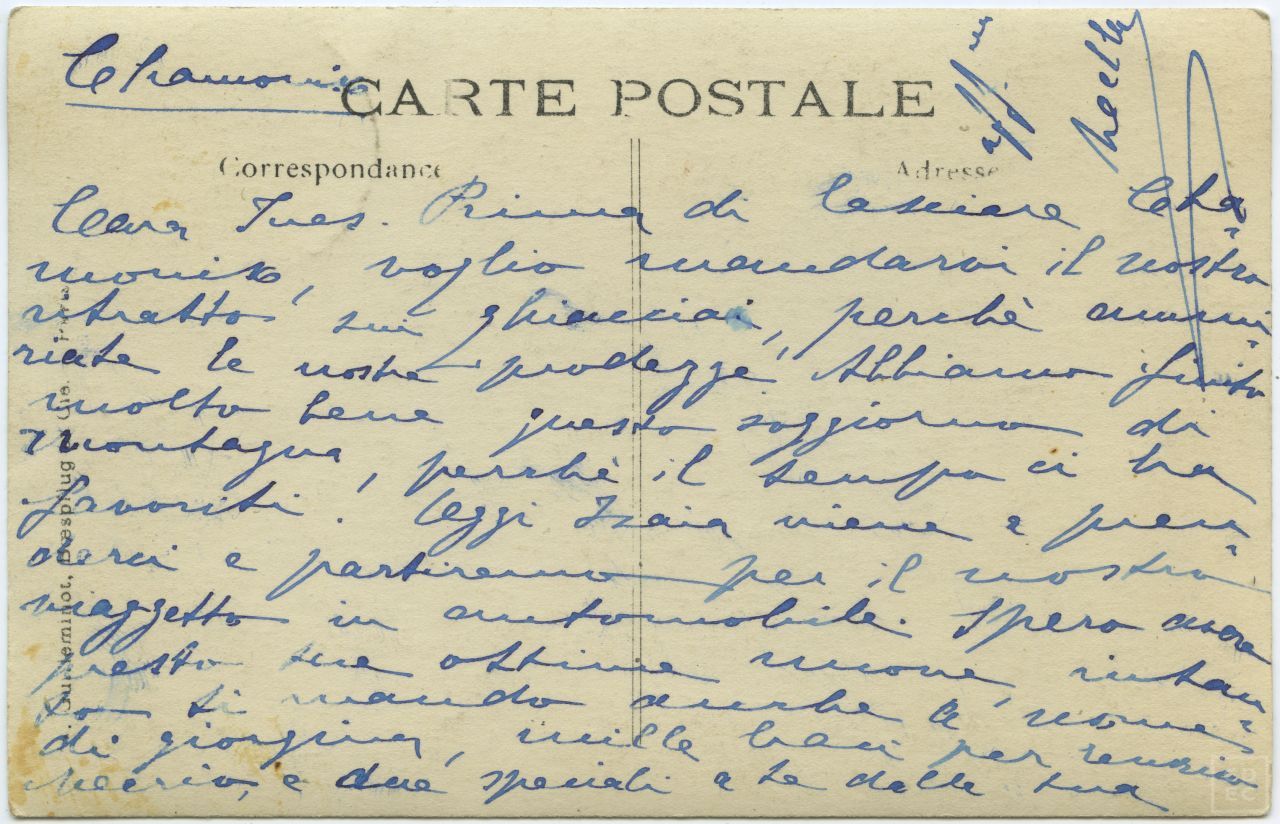 Chamonix
CARTE POSTALE
Correspondance
Adresse
Cara Ines. Prima di lasciare Cha-
monix, voglio mandarvi il nostro
ritratto sui ghiacciai, perchè ammi-
riate le nostre prodezze, Abbiamo finito
molto bene questo soggiorno di
montagna, perchè il tempo ci ha
favoriti! Oggi Isaia viene a pren-
derci e partiremo per il nostro
viaggetto in automobile. Spero avere
presto tue ottime nuove, intan-
to ti mando anche a nome
di Giorgina, mille baci per
e due speciali a te dalla tua
aff